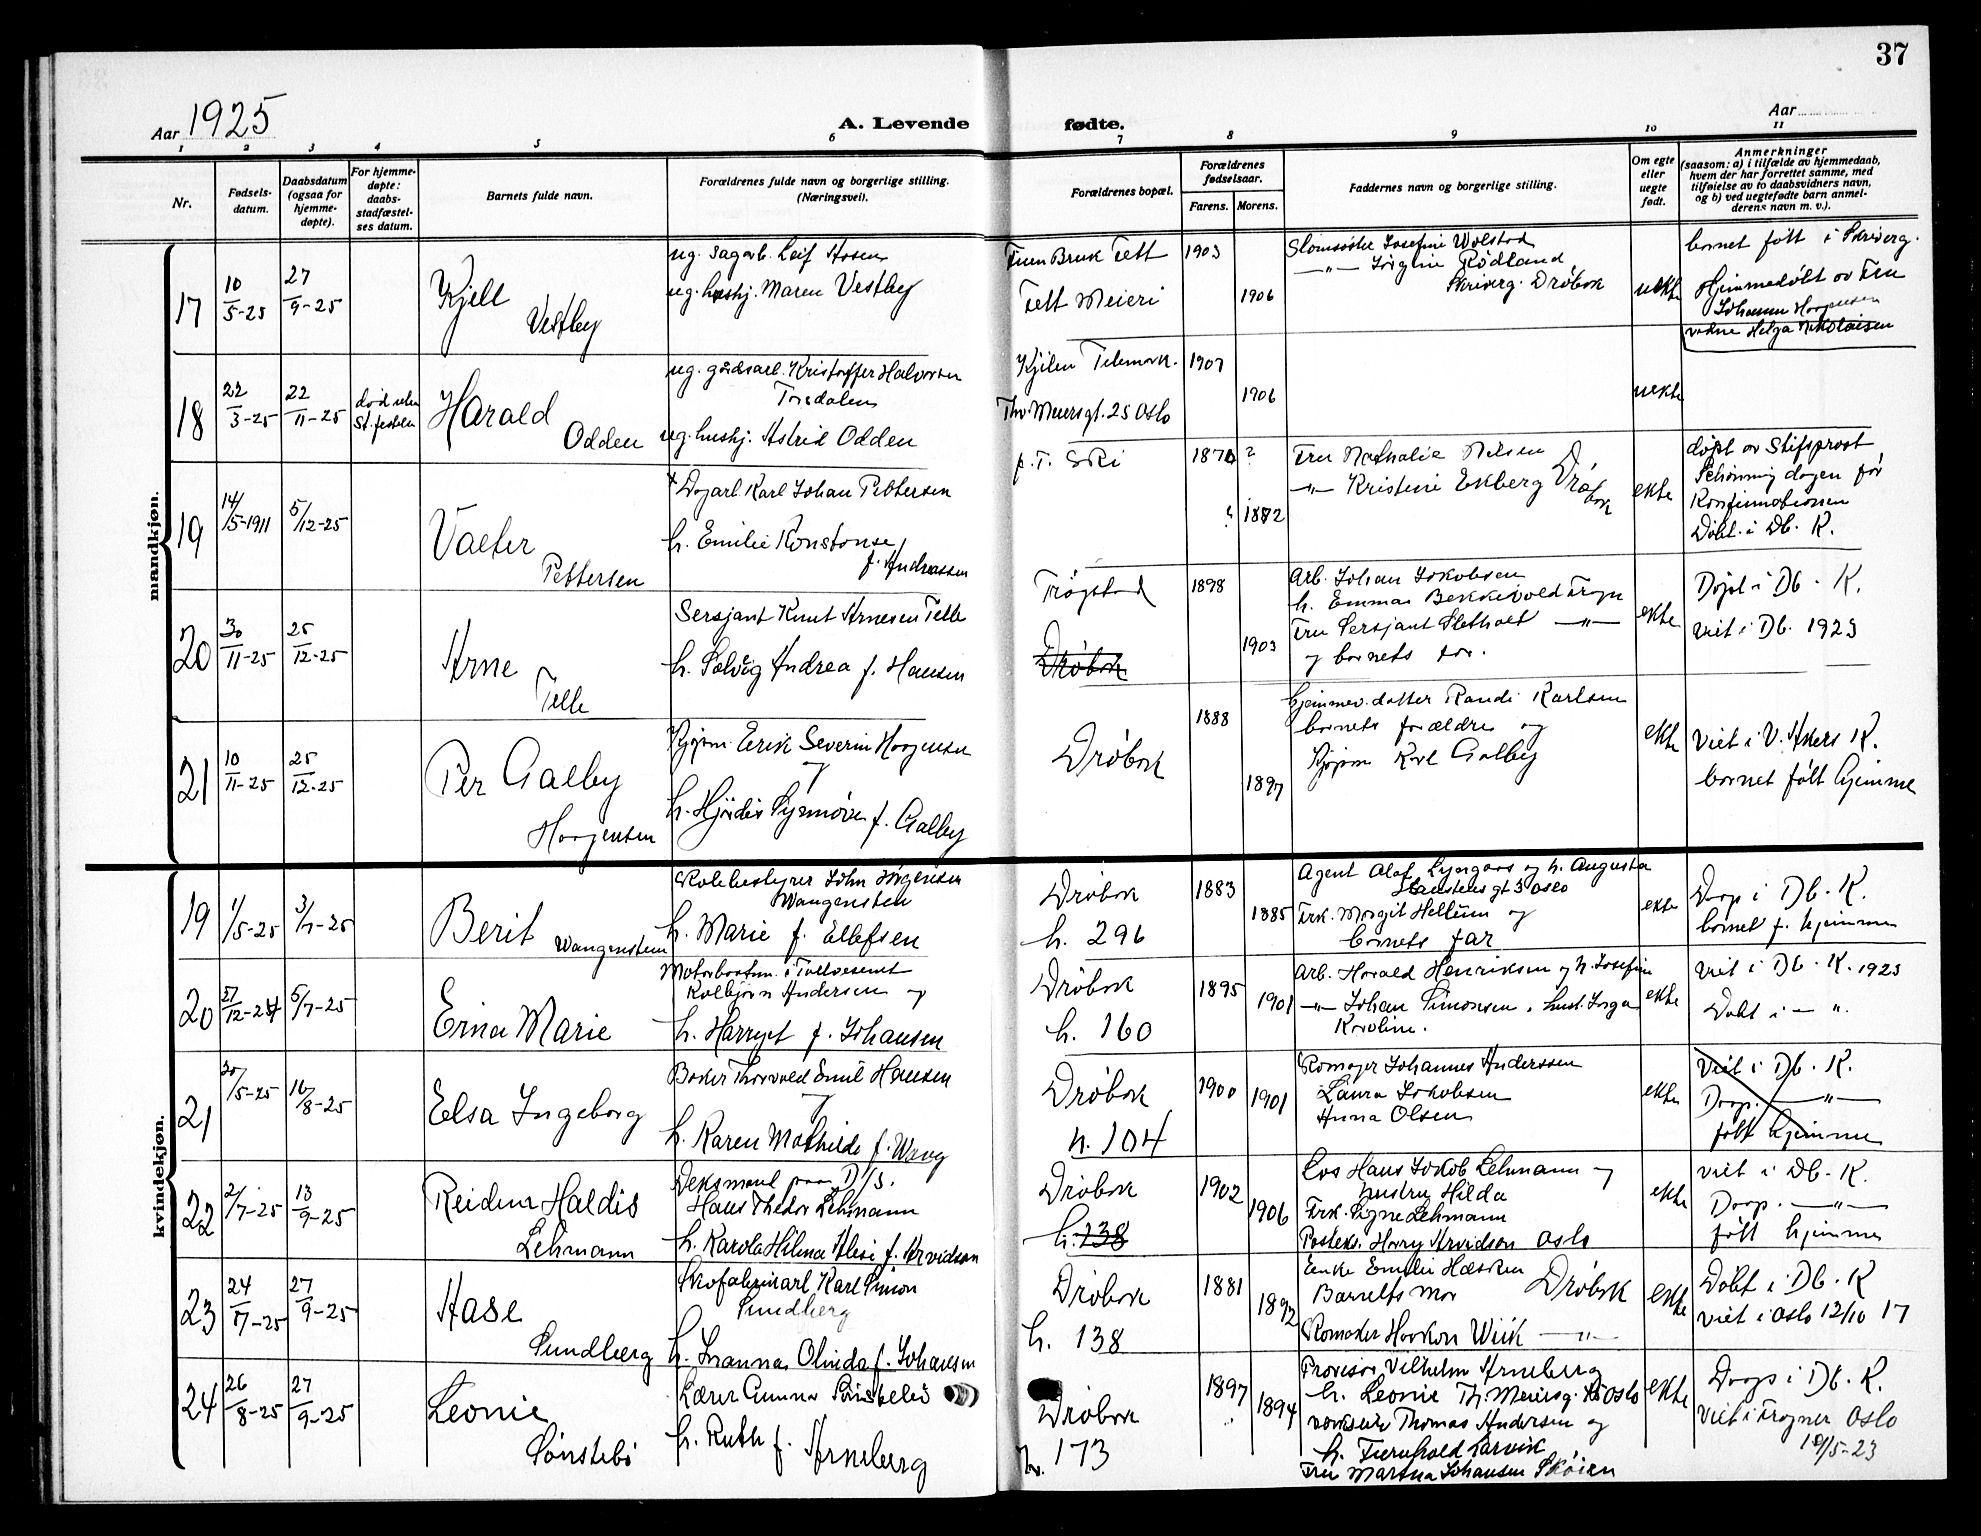 37
Aar 1925
A. Levende fødte.
Aar
1 2 3 4 5 6 7 8 9 10 11
Nr.
Fødsels-
datum.
Daabsdatum
(ogsaa for
hjemme-
døpte).
For hjemme-
døpte:
daabs-
stadfæstel-
ses datum.
Barnets fulde navn.
Forældrenes fulde navn og borgerlige stilling.
(Næringsvei).
Forældrenes bopæl.
Forældrenes
fødselsaar.
Farens. Morens.
Faddernes navn og borgerlige stilling.
Om egte
eller
uegte
født.
Anmerkninger
(saasom: a) i tilfælde av hjemmedaab,
hvem der har forrettet samme, med
tilføielse av to daabsvidners navn,
og b) ved uegtefødte barn anmel-
derens navn m. v.).
mandkjøn.
17
10/5-25
27/9-25
Kjell
Vestby
ug. sagarb. Leif Aasen
ug. hushj. Maren Vestby
Bruk Tett
Tett Meieri
1903
1906
Josefine Wolstad
-"- Rødland
Drøbak
uekte
barnet født i
Hjemmedøbt av Fru
Johanne
Helga Nikolaisen
18
22/3-25
22/11-25
død uten
st. festelse
Harald
Odden
ug. gårdsarb. Kristoffer Halvorsen
Torsdalen
ug. hushj. Astrid Odden
Telemark.
Thv Meiersgt. 25 Oslo
1907
1906
uekte
19
14/5-1911
5/12-25
Valter
Pettersen
Karl Johan Pettersen
h. Emilie Konstanse
f. Andreassen
p. t. Ski
1874 ?
1872
Fru Nathalie Nilsen
-"- Kristine Ekberg Drøbak
ekte
døpt av Stifsprost
Schønning dagen før
Konfirmationen
Døbt i Db. K.
20
30/11-25
25/12-25
Arne
Telle
Sersjant Knut Arnesen Telle
h. Solveig Andrea f. Hansen
Trøgstad
Drøbak
1898
1903
Arb. Johan Jakobsen
h. Emma Bekkevold Frogn
Fru Sersjant Sletholt -"-
og barnets far.
ekte
Døpt i Db. K.
viet i Db. 1925
21
10/11-25
25/12-25
Per Galby
Haagensen
Kjøpm. Eerik Severin Haagensen
og
h. Hjördis Synnöve f. Galby
Drøbak
1888
1897
hjemmev. datter Randi Karlsen
barnets forældre og
Kjøpm Karl Galby
ekte
Viet i V. Akers K.
barnet født hjemme
kvindekjøn.
19
1/5-25
3/7-25
Berit Wangensteen
Skolebestyrer John Jörgensen
Wangensteen
h. Marie f. Ellefsen
Drøbak
h. 296
1883
1885
Agent Olaf Lyngaas og h. Augusta
Oslo
Frk. Margit Hellum og
barnets far
ekte
Daap i Db. K.
barnet f. hjemme
20
27/12-24
5/7-25
Erna Marie
Motorbaatsm. i Tollvesenet
Kolbjørn Andersen og
h. Harryet f. Johansen
Drøbak
h. 160
1895
1901
Arb. Harald Henriksen og h. Josefine
-"- Johan Simonsen, hust. Inga
Karoline.
ekte
viet i Db. K. 1923
Døbt i -"-
21
30/5-25
16/8-25
Elsa Ingeborg
Baker Thorvald Emil Hansen
og
h. Karen Mathilde f. Wang
Drøbak
h. 104
1900
1901
Johannes Anderssen
Laura Jakobsen
Anna Olsen
ekte
Viet i Db. K.
Daap. -"-
født hjemme
22
2/7-25
13/9-25
Reidun Haldis
Lehmann
Deksmand paa D/S.
Hans Thedor Lehmann
h. Karola Hilma Alisi f. Arvidson
Drøbak
h. 138
1902
1906
Los Hans Jakob Lehmann og
hustru Hilda
Frk. Signe Lehmann
Harry Arvidson Oslo
ekte
viet i Db. K.
Daap. -"-
født hjemme
23
24/7-25
27/9-25
Aase
Sundberg
Skofabrikarb. Karl Simon
Sundberg
h. Joanna Olinda f. Johansen
Drøbak
h. 138
1881
1892
Enke Emilie
Barnets mor Drøbak
Haakon Wiik -"-
ekte
Døbt i Db. K
viet i Oslo 12/10 17
24
26/8-25
27/9-25
Leonie
Sönstebö
Lærer Gunnar Sönstebö
h. Ruth f. Arneberg
Drøbak
h. 173
1897
1894
Provisor Vilhelm Arneberg
h. Leonie Th. Meiersg. Oslo
Thomas Andersen og
h. Larvik
Fru Martha Johansen Skøien
ekte
Daap i Db. K.
Viet i Frogner Oslo
10/5-23